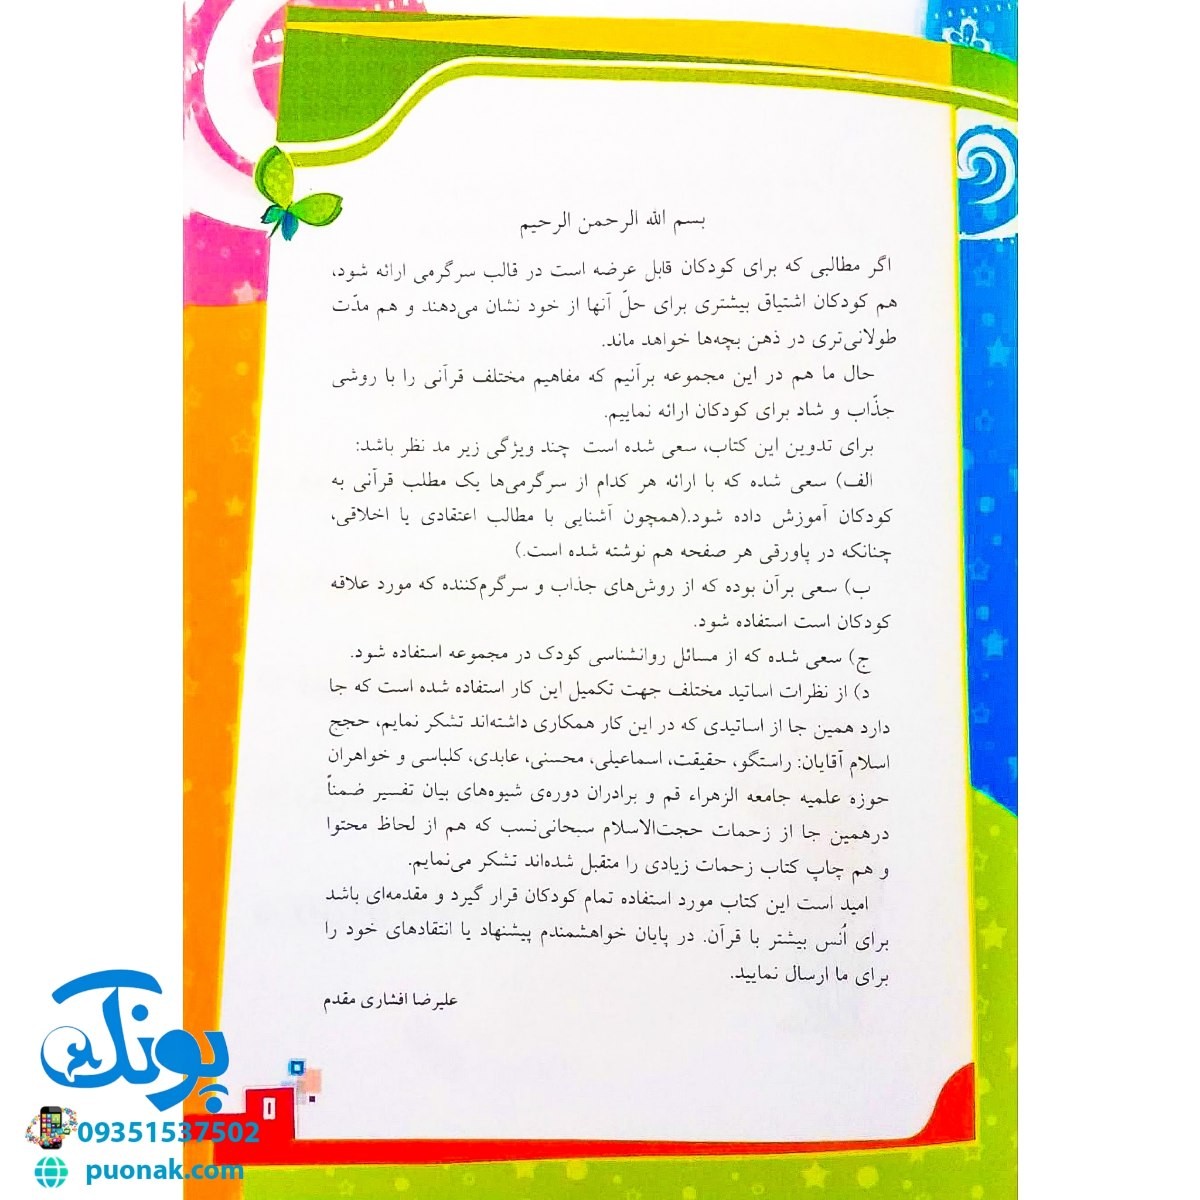 بسم الله الرحمن الرحیم
اگر مطالبی که برای کودکان قابل عرضه است در قالب سرگرمی ارائه شود،
هم کودکان اشتیاق بیشتری برای حلّ آنها از خود نشان می‌دهند و هم مدّت
طولانی‌تری در ذهن بچه‌ها خواهد ماند.
حال ما هم در این مجموعه برآنیم که مفاهیم مختلف قرآنی را با روشی
جذّاب و شاد برای کودکان ارائه نماییم.
برای تدوین این کتاب، سعی شده است چند ویژگی زیر مد نظر باشد:
الف) سعی شده که با ارائه هر کدام از سرگرمی‌ها یک مطلب قرآنی به
کودکان آموزش داده شود.(همچون آشنایی با مطالب اعتقادی یا اخلاقی،
چنانکه در پاورقی هر صفحه هم نوشته شده است.)
ب) سعی برآن بوده که از روش‌های جذاب و سرگرم‌کننده که مورد علاقه
کودکان است استفاده شود.
ج) سعی شده که از مسائل روانشناسی کودک در مجموعه استفاده شود.
د) از نظرات اساتید مختلف جهت تکمیل این کار استفاده شده است که جا
دارد همین جا از اساتیدی که در این کار همکاری داشته‌اند تشکر نمایم، حجج
اسلام آقایان: راستگو، حقیقت، اسماعیلی، محسنی، عابدی، کلباسی و خواهران
حوزه علمیه جامعه الزهراء قم و برادران دوره‌ی شیوه‌های بیان تفسیر ضمناً
درهمین جا از زحمات حجت‌الاسلام سبحانی‌نسب که هم از لحاظ محتوا
و هم چاپ کتاب زحمات زیادی را متقبل شده‌اند تشکر می‌نمایم.
امید است این کتاب مورد استفاده تمام کودکان قرار گیرد و مقدمه‌ای باشد
برای اُنس بیشتر با قرآن. در پایان خواهشمندم پیشنهاد یا انتقادهای خود را
برای ما ارسال نمایید.
علیرضا افشاری مقدم
پونک
09351537502
puonak.com